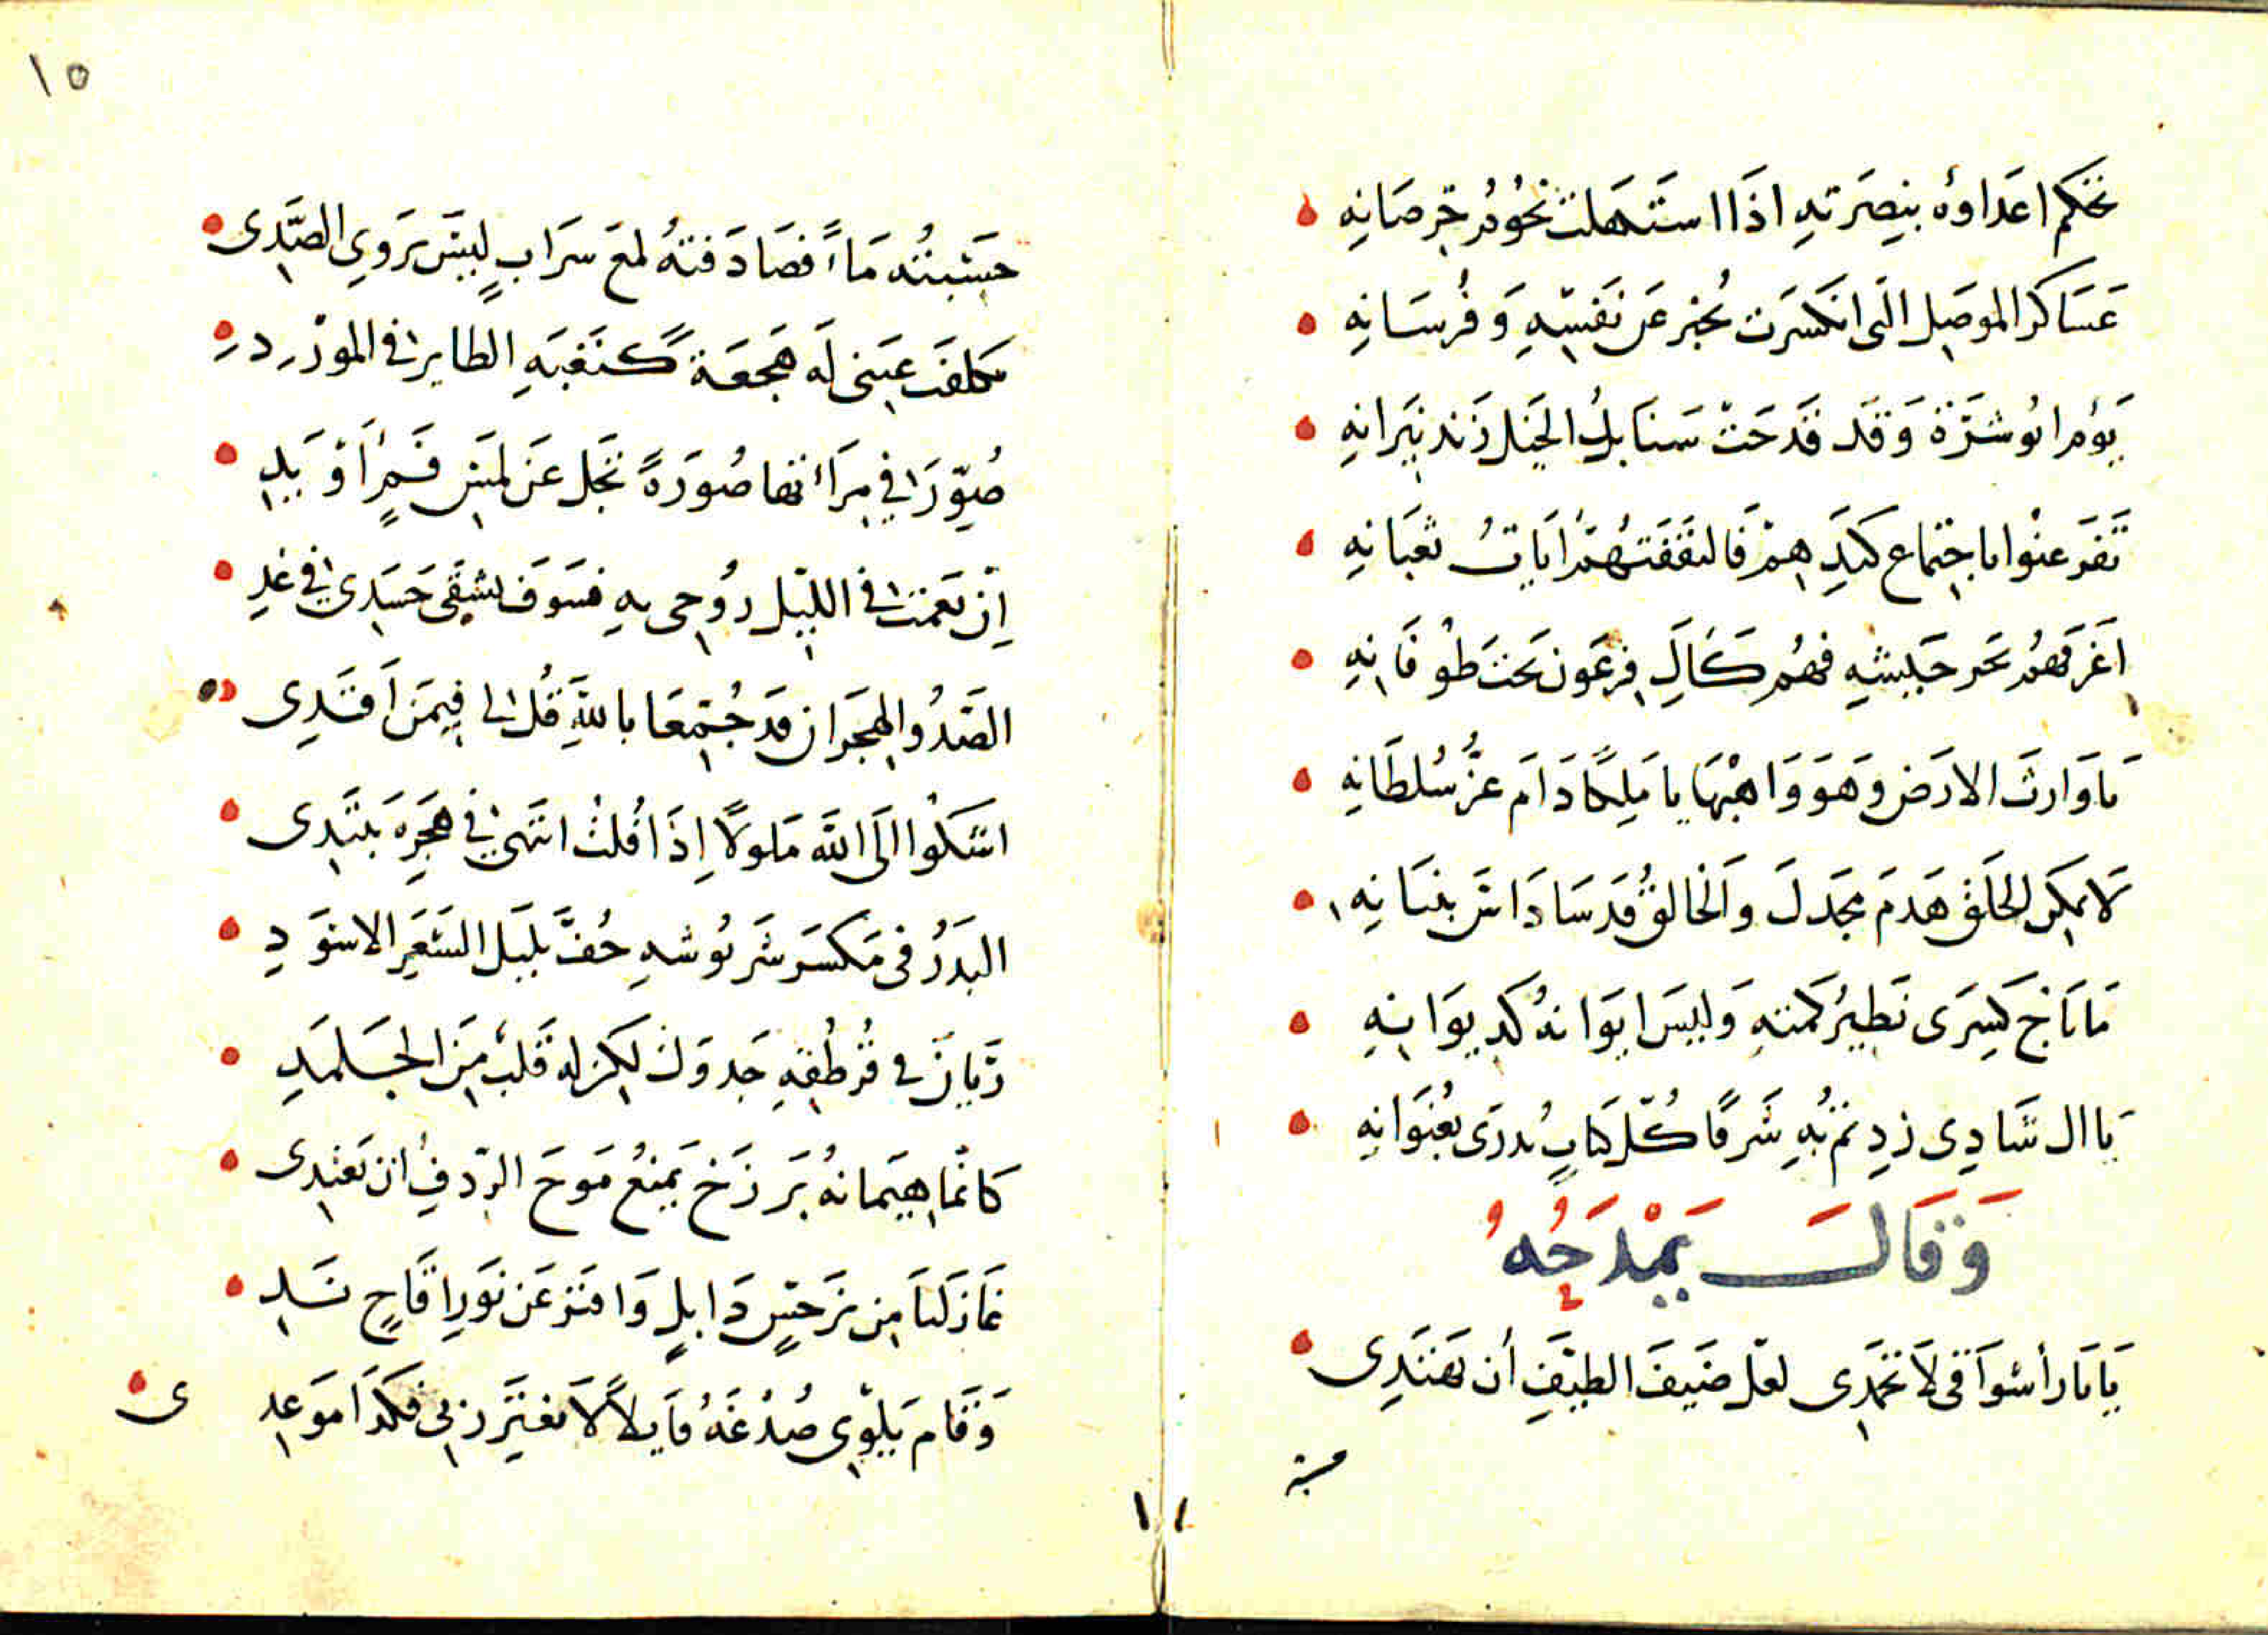 تحكم اعداوه بنصرته اذا استهلت نحو خرصانه
عَسَاكر الموصِل التى انكسَرت تُخبر عَن نَفسِهِ وَفُرسَانِهِ
يَوْم ابُو شزَّة وَقَد قَدَحَتْ سَنَابِكُ الخَيل زَند نِيَرانِهِ
تَفَرعنُوا باجتماع كيدِهِمْ فَالتقَفَتهُمْ اَيَاتُ ثُعبَانِهِ
اَغرقهُم بحر جَيشِهِ فهُم كَآلِ فِرعَون تَحتَ طُوفَانِهِ
يا وَارثَ الارَض وَهوَ وَاهبُهَا يا مَلِكًا دَامَ عِزُّ سُلطَانِهِ
لَا يمكن الخَلق هَدمَ مجَدكَ وَالخالِقُ قَد سَادَ اسَّ بنيَانِهِ
مَا تَاج كِسرَى نَظِيرُ كمته وَليسَ ايوَانهُ كديوَانِهِ
يَا ال شَادِى زدتم بُهِ شَرفًا كُلّ كتابٍ يدرَى بعُنوَانِهِ
وَقَالَ يَمْدَحُهُ
يَا نَار أشوَاقى لَا تخمدِى لعَلّ ضَيفَ الطيفِ أن يَهتَدِى
١٥
حَسِبتُه مَاءً فصَادَفتهُ لمعَ سَرَابٍ ليسَ يَروِي الصَّدِى
عَينى لَه هَجعَةً كنَغبَهِ الطاير فى الموْرِدِ
صُوِّرَ فِي مِرَاتها صُورَةً تجَل عَن لمسِ فَمٍ اَوْ يَدِ
اِن نَعمَت فى اللَّيل رُوحِى بهِ فسَوفَ يشقَى جَسَدِى فِي غَدِ
الصَدُ والهِجَران قد جُمِعَا باللهِ قُل لى فِيمَن اَقتَدِى
اشكوا اِلَى الله مَلولًا اِذَا قُلتُ انتَهى في هَجرِهِ يَبتَدِى
البَدرُ فى مَكسَر شَربُوشهِ حُفَّ بليَل الشعَرِ الاسوَدِ
رَيانَ فى قُرطُقِهِ جَدوَل لكن له قَلبٌ مِنَ الجَلمَدِ
كانما هِيمَانهُ بَرزَخ يَمنعُ مَوجَ الرّدفِ ان يَعتَدِى
غَازَلنَا مِن نَرجسٍ ذَابِلٍ وَافتَر عَن نَورِ اقَاحٍ نَدِ
وَقَام يَلوِى صُدْغَهُ قَايلاً لَا تغتَرر بى فكَذَا مَوعِدِى